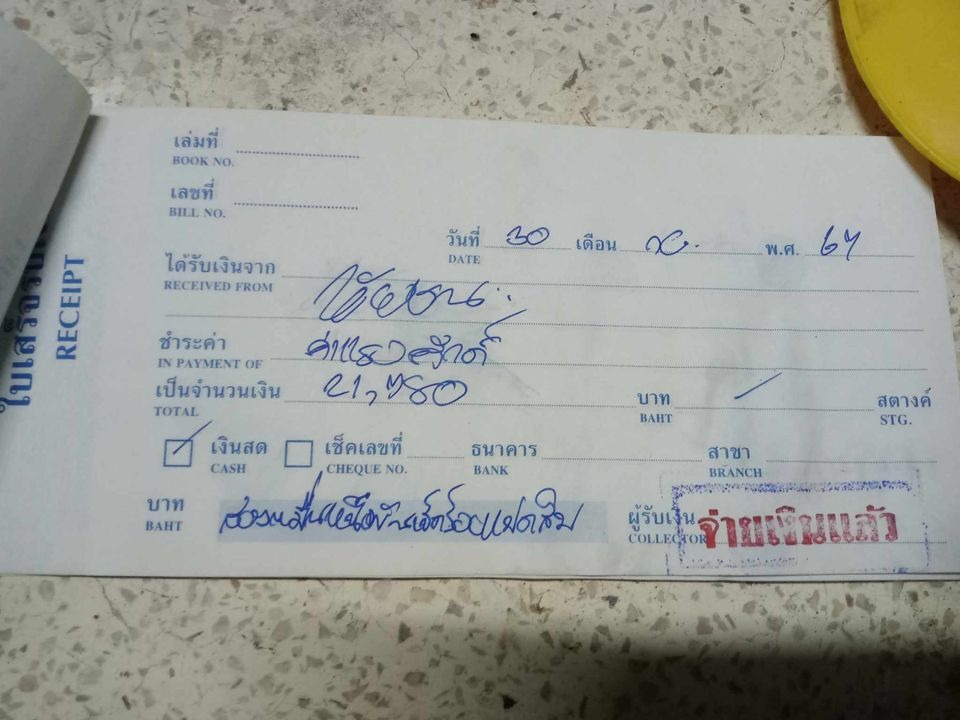 ใบเสร็จรับเงิน
RECEIPT
เล่มที่
BOOK NO.
เลขที่
BILL NO.
วันที่ 30 เดือน พ.ศ. 67
DATE
ได้รับเงินจาก
RECEIVED FROM
ชำระค่า ค่าแรง
IN PAYMENT OF
เป็นจำนวนเงิน 21,780 บาท สตางค์
TOTAL BAHT STG.
เงินสด เช็คเลขที่ ธนาคาร สาขา
CASH CHEQUE NO. BANK BRANCH
บาท สองหมื่นหนึ่งพันเจ็ดร้อยแปดสิบ ผู้รับเงิน
BAHT COLLECTOR
จ่ายเงินแล้ว